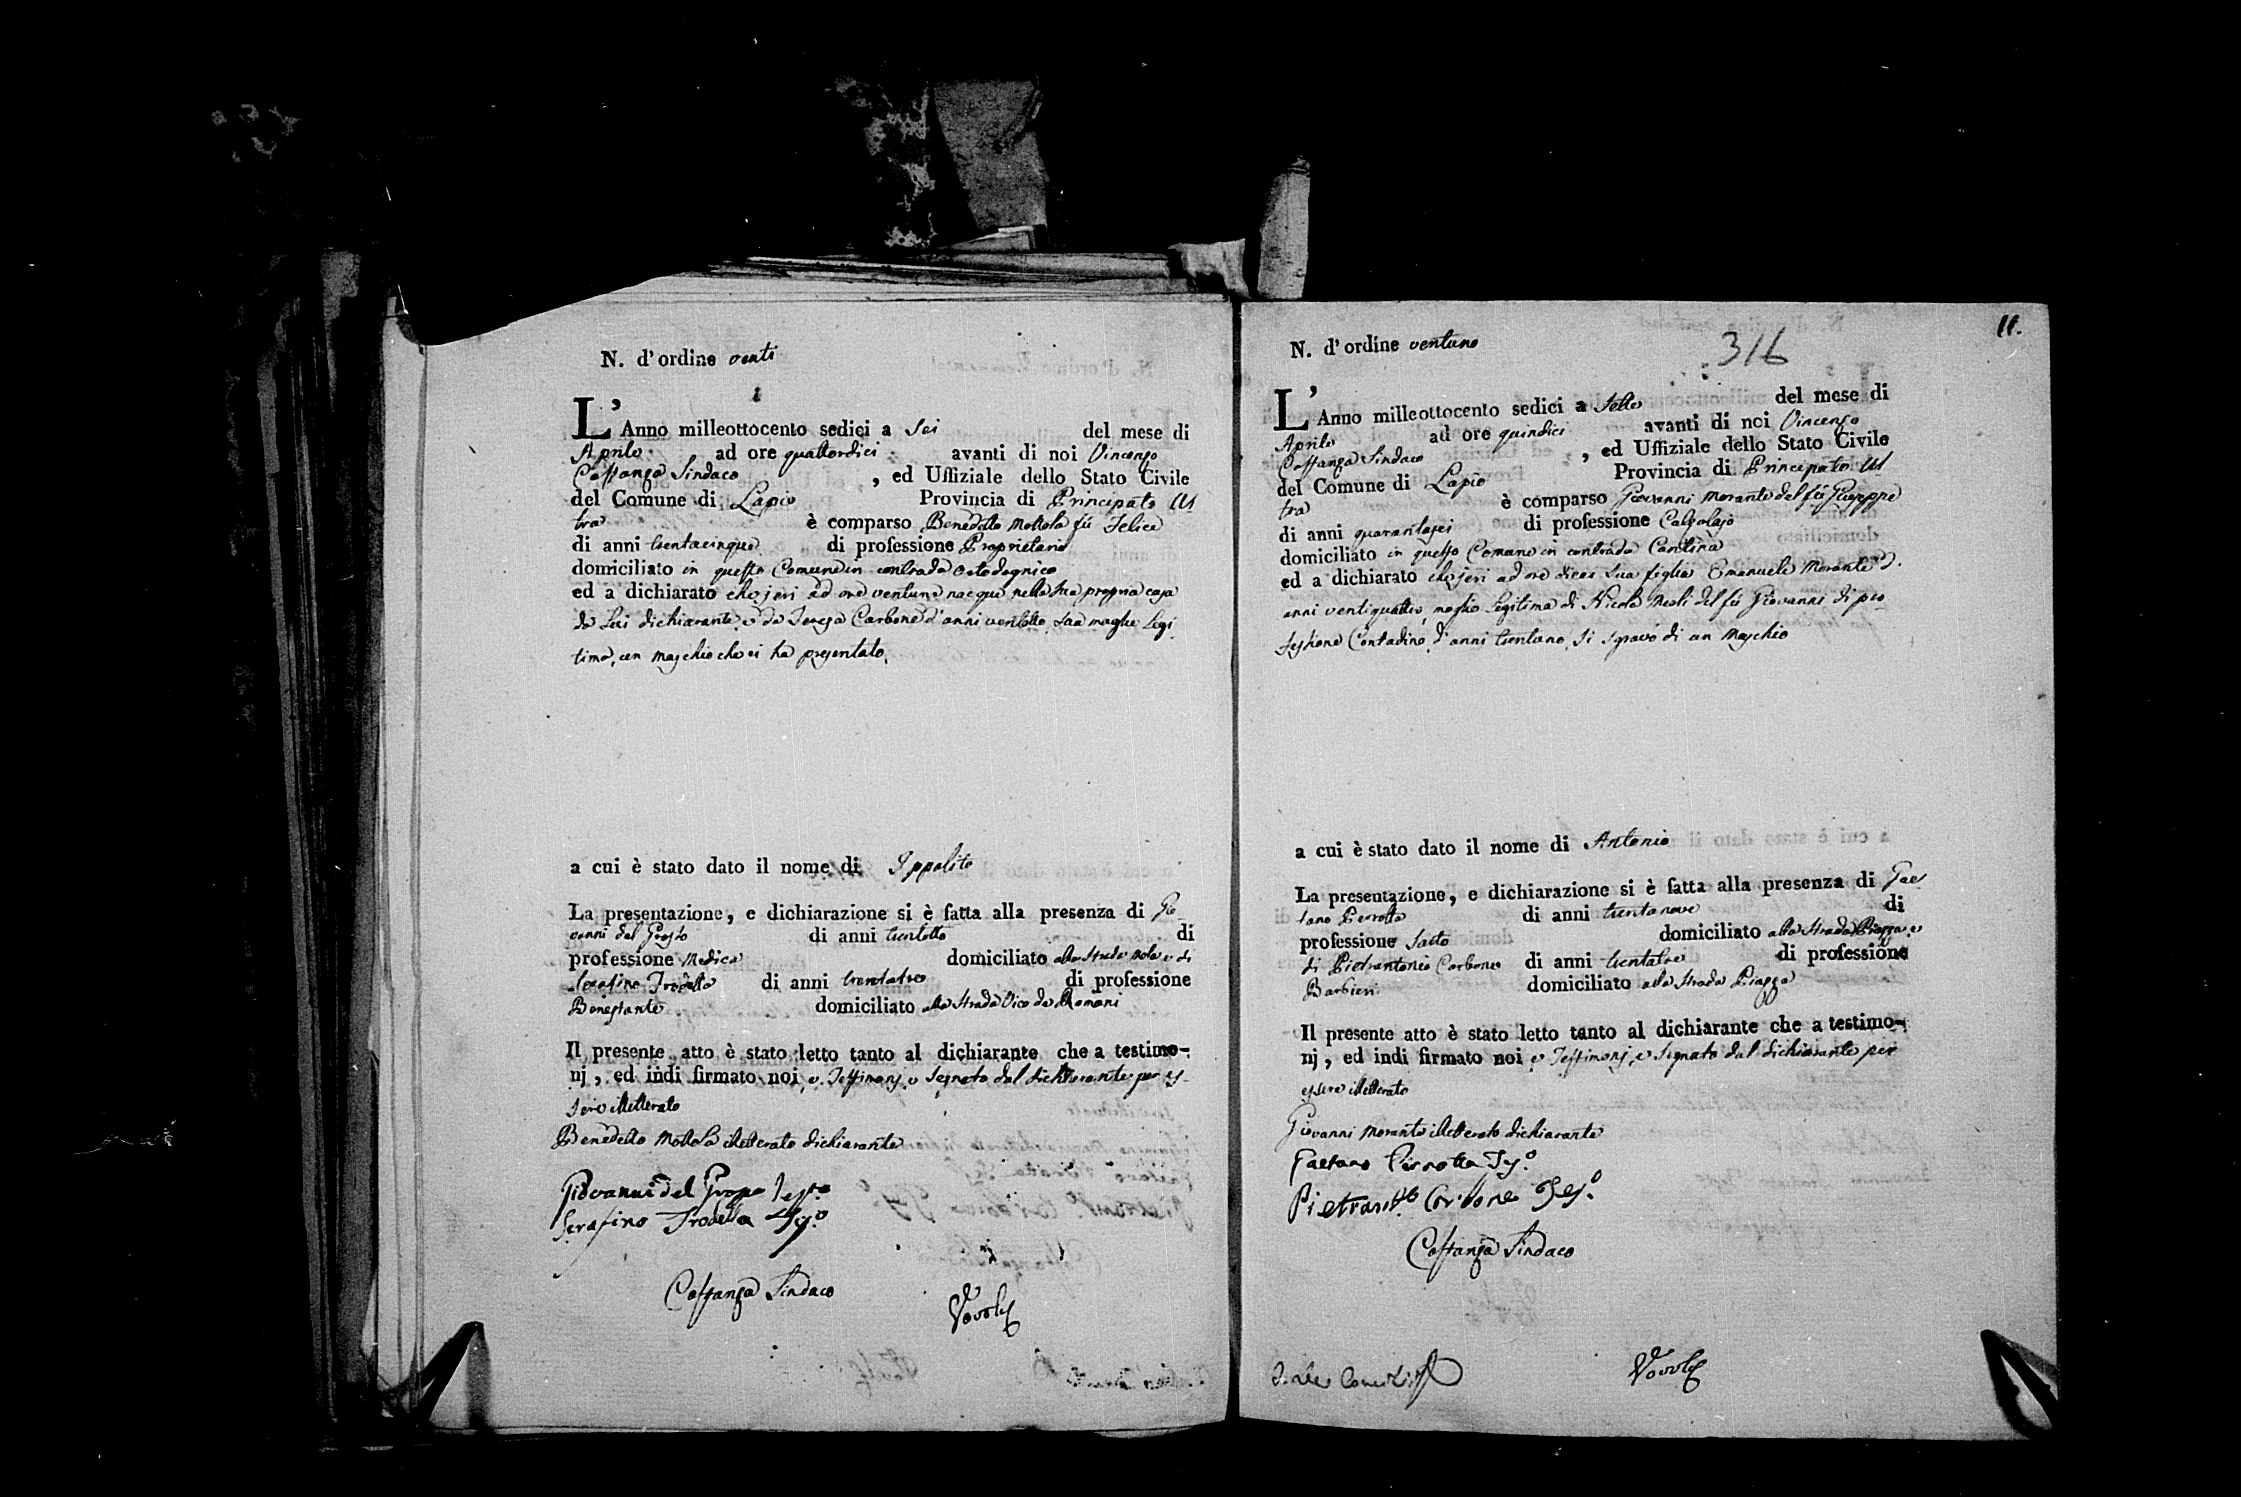 N. d'ordine venti
L'Anno milleottocento sedici a Sei del mese di
Aprile ad ore quattordici avanti di noi Vincenzo
Costanza Sindaco , ed Uffiziale dello Stato Civile
del Comune di Lapio Provincia di Principato Ul
tra è comparso Benedetto Mottola fù Felice
di anni trentacinque di professione Proprietario
domiciliato in questo Comune in contrada
ed a dichiarato che jeri ad ore ventuno nacque nella sua propria casa
da Lui dichiarante, e da Teresa Carbone d'anni ventotto sua moglie Legi
tima, un maschio che ci ha presentato.
a cui è stato dato il nome di Ippolito
La presentazione, e dichiarazione si è fatta alla presenza di Gio
vanni del Grosso di anni trentotto di
professione Medico domiciliato alla Strada e di
Serafino Trodella di anni trentatre di professione
Benestante domiciliato alla Strada Vico de Romani
Il presente atto è stato letto tanto al dichiarante che a testimo-
nj, ed indi firmato noi, e Testimonj, e Segnato dal dichiarante per es
sere illetterato
Benedetto Mottola illetterato dichiarante
Giovanni del Grosso Testo
Serafino Trodella Tes.o
Costanza Sindaco
N. d'ordine ventuno
316
11.
L'Anno milleottocento sedici a Sette del mese di
Aprile ad ore quindici avanti di noi Vincenzo
Costanza Sindaco , ed Uffiziale dello Stato Civile
del Comune di Lapio Provincia di Principato Ul
tra è comparso Giovanni Morante del fù Giuseppe
di anni quarantasei di professione Calzolajo
domiciliato in questo Comune in contrada Cantina
ed a dichiarato che jeri ad ore dieci sua figlia Emanuele Morante d'
anni ventiquattro, moglie Legitima di Nicola Meoli del fù Giovanni di pro
fessione Contadino, d'anni trentuno, si sgravò di un Maschio
a cui è stato dato il nome di Antonio
La presentazione, e dichiarazione si è fatta alla presenza di Gae
tano Pirrotta di anni trentanove di
professione Sarto domiciliato alla Strada Piazza, e
di Pietrantonio Carbone di anni trentatre di professione
Barbieri domiciliato alla Strada Piazza
Il presente atto è stato letto tanto al dichiarante che a testimo-
nj, ed indi firmato noi, e Testimonj, e Segnato dal dichiarante per
essere illetterato
Giovanni Morante illetterato dichiarante
Gaetano Pirrotta Tes.o
Pietrant.o Carbone Tes.o
Costanza Sindaco